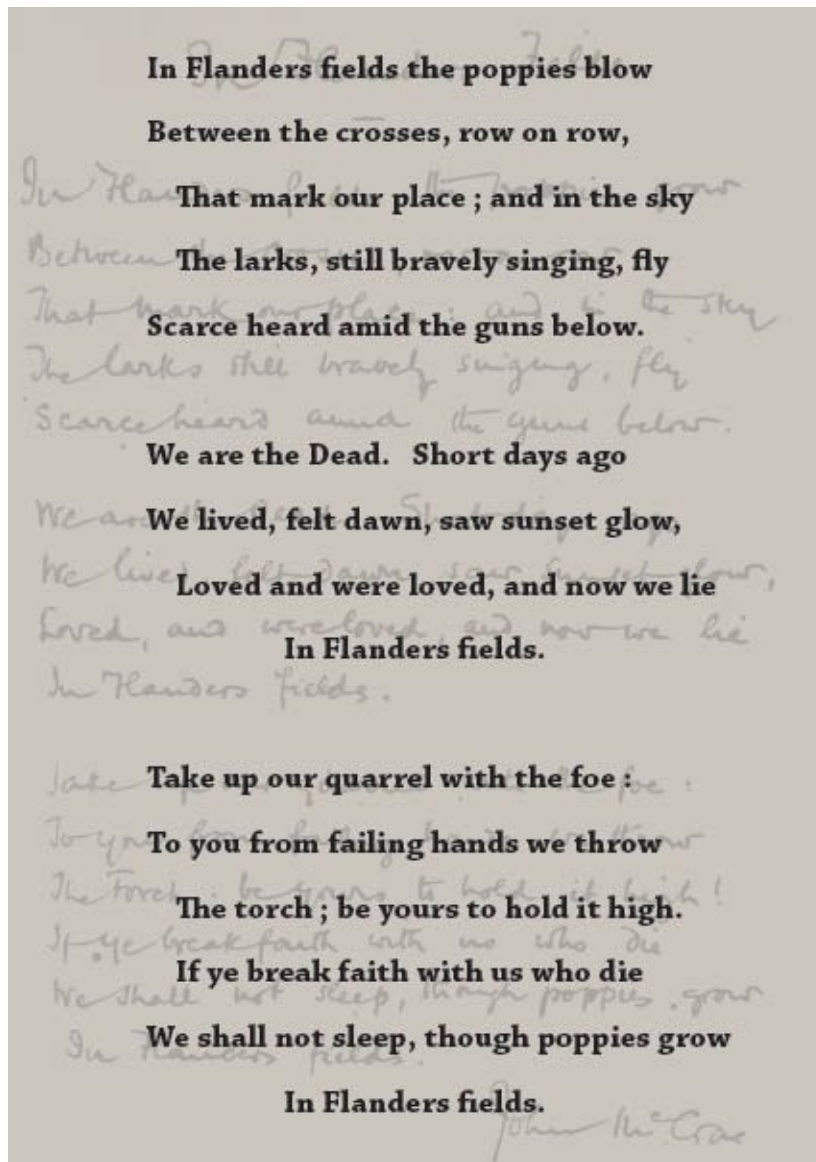 In Flanders fields the poppies blow
Between the crosses, row on row,
That mark our place ; and in the sky
The larks, still bravely singing, fly
Scarce heard amid the guns below.
We are the Dead. Short days ago
We lived, felt dawn, saw sunset glow,
Loved and were loved, and now we lie
In Flanders fields.
Take up our quarrel with the foe :
To you from failing hands we throw
The torch ; be yours to hold it high.
If ye break faith with us who die
We shall not sleep, though poppies grow
In Flanders fields.
In Flanders Fields
In Flanders the poppies grow
Between
That mark our place : and in the sky
The larks still bravely singing, fly
Scarce heard amid the guns below.
We are
We lived
Loved, and were loved, and now we lie
In Flanders fields.
Take foe :
To you
The Torch : be yours to hold it high!
If ye break faith with us who die
We shall not sleep, though poppies grow
In Flanders fields.
John McCrae